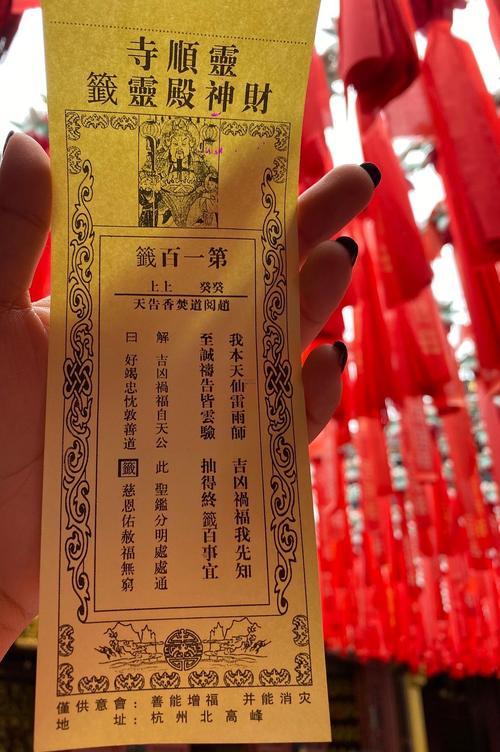 靈順寺
財神殿靈籤
第一百籤
癸癸 上上
趙閱道焚香告天
我本天仙雷雨師 吉凶禍福我先知
至誠禱告皆雲驗 抽得終籤百事宜
解 吉凶禍福自天公 此 聖鑑分明處處通
曰 好竭忠忱敦善道 籤 慈恩佑赦福無窮
僅供意會：善能增福 并能消灾
地 址：杭州北高峰